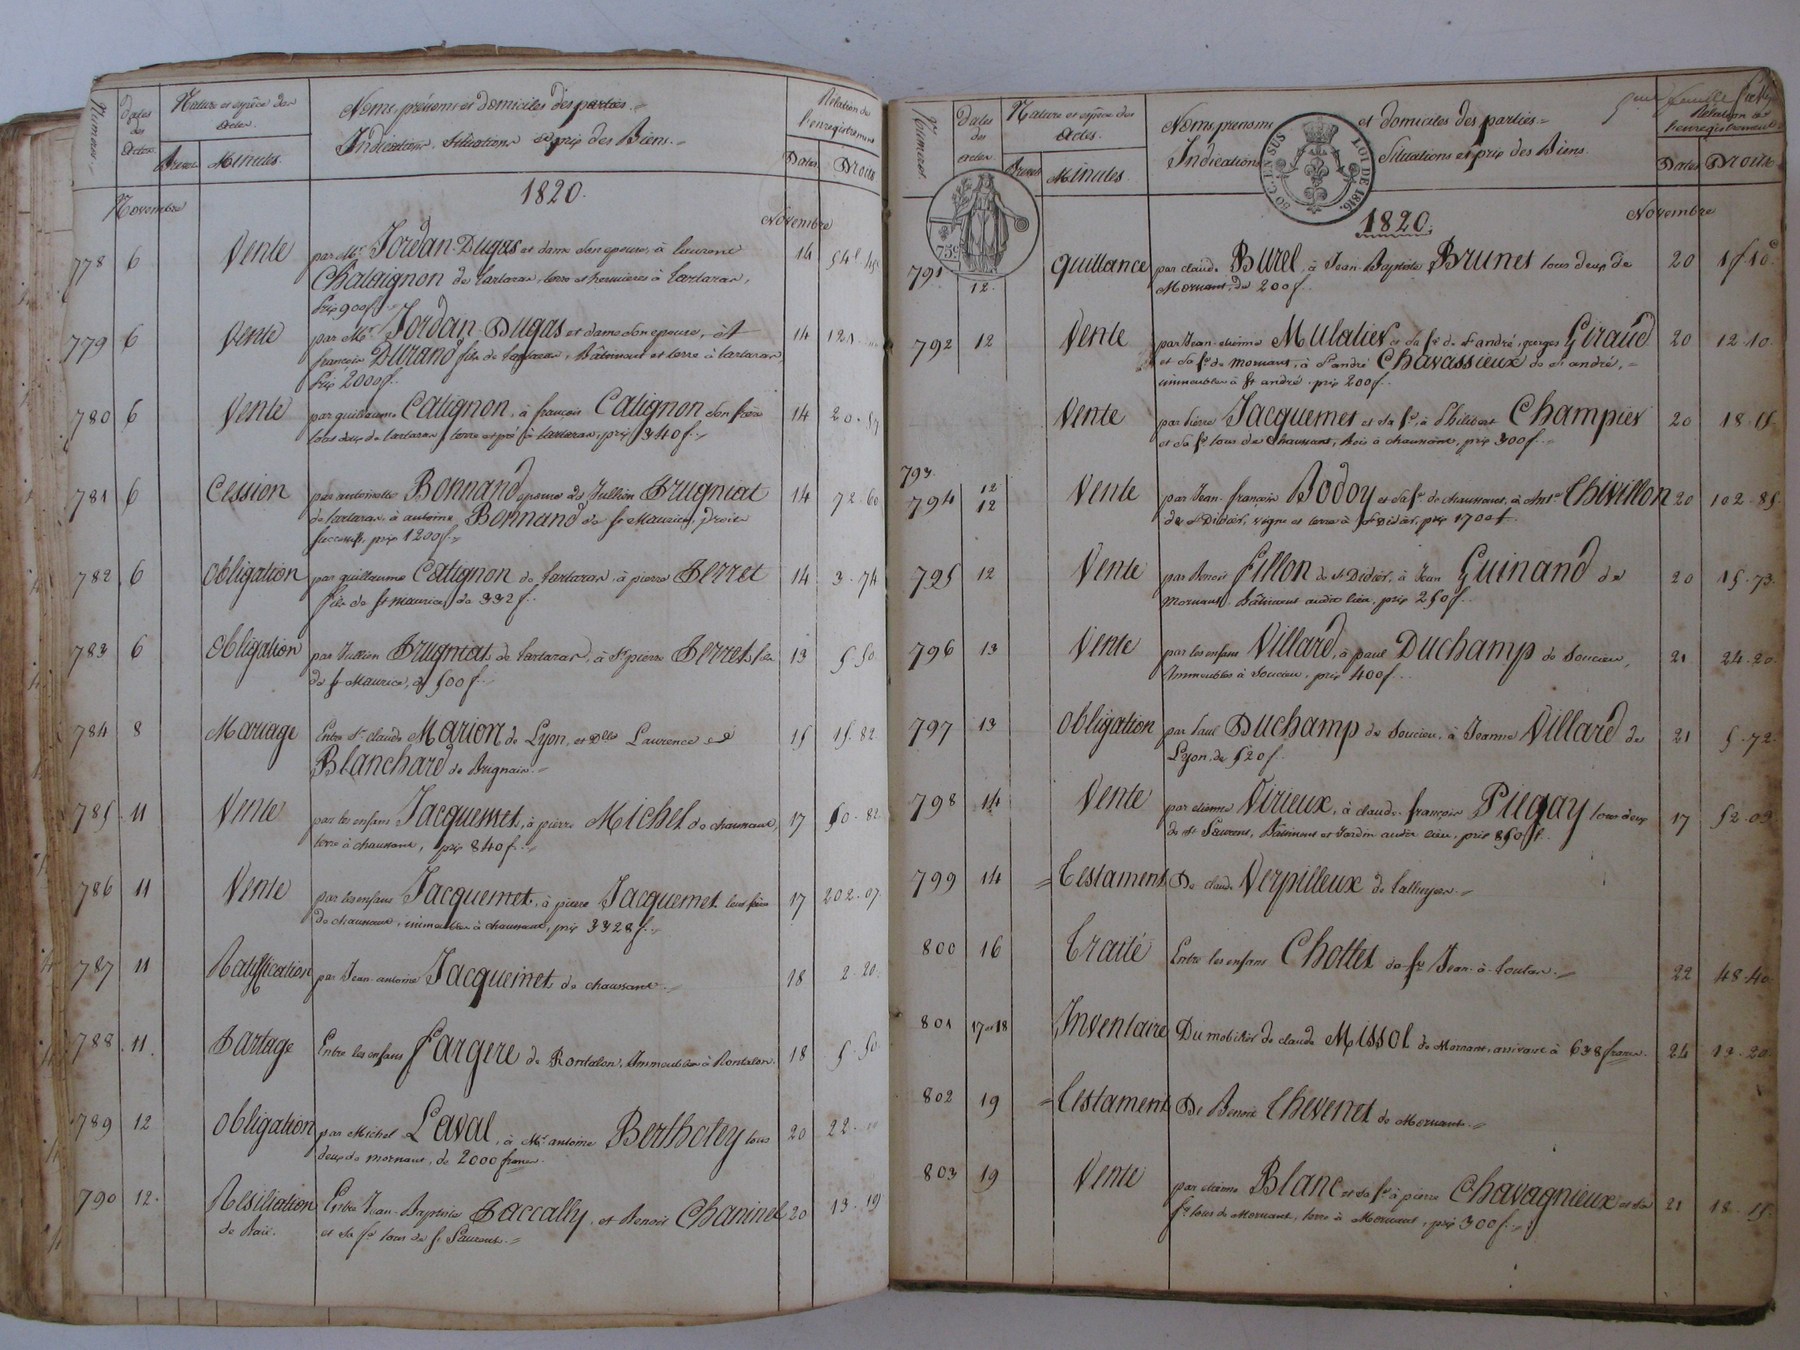 Numéros
Dates des Actes
Nature et espèce des actes.
Brevets Minutes.
Noms, prénoms et domiciles des parties.
Indication, Situation et prix des Biens.
Relation de l'enregistrement
Dates Droits
1820.
Novembre Novembre
778 6 Vente par Mr. Jordan-Dugas et dame son épouse, à Laurent 14 54f 45c
Chataignon de tartaras, terre et hermières à tartaras,
prix 900f.
779 6 Vente par Mr. Jordan-Dugas et dame son épouse, à 14 121
françois Durand fils de tartaras, Bâtiment et terre à tartaras,
Prix 2000f.
780 6 Vente par guillaume Catignon, à françois Catignon son frère 14 20 57
tous deux de tartaras, terre et pré à tartaras, prix 340f.
781 6 Cession par antoinette Bonnand épouse de Jullien Brugniat 14 72 60
de tartaras, à antoine Bonnand de St Maurice, droits
successifs, prix 1200f.
782 6 Obligation par guillaume Catignon de tartaras, à pierre Perret 14 3.74
fils de St Maurice, de 332f.
783 6 Obligation par Jullien Brugniat, de tartaras, à St pierre Perret, fils 13 5 50
de St Maurice, de 500f.
784 8 Mariage Entre Sr. claude Marion de Lyon, et Dlle Laurence 15 15.82
Blanchard de Brignais.
785 11 Vente par les enfans Jacquemet, à pierre Michel de chaussant, 17 50.82
terre à chaussant, prix 840f.
786 11 Vente par les enfans Jacquemet, à pierre Jacquemet leur frère 17 202.07
de chaussant, immeubles à chaussant, prix 3328f.
787 11 Ratiffication par Jean-antoine Jacquemet de chaussant. 18 2.20
788 11 Partage Entre les enfans Fargere de Rontalon, Immeubles à Rontalon. 18 5.50
789 12 Obligation par Michel Laval, à Mr. antoine Berthotey tous 20 22
deux de mornant, de 2000 francs.
790 12. Résiliation Entre Jean-Baptiste Baccally, et Benoit Chaninel 20 13.19
de Bail. et sa fe tous de St Laurent.
Numéros
Dates des actes
Nature et espèce des actes.
Brevets Minutes.
Noms, prénoms et domiciles des parties
Indications Situations et prix des Biens.
Relation de l'enregistrement
Dates Droits
75c
50 C. EN SUS
LOI DE 1816.
1820.
Novembre
791 12. Quittance par claude Burel, à Jean-Baptiste Brunet tous deux de 20 1f 10c
Mornant, de 200f.
792 12 Vente par Jean-étienne Mulatier et sa fe de St andré, georges Giraud 20 12.10
et sa fe de Mornant, à andré Chavassieux de St andré,
immeubles à St andré, prix 200f.
793. 12 Vente par pierre Jacquemet et sa fe, à Philibert Champier 20 18.15
et sa fe tous de Chaussant, Bois à chaussant, prix 300f.
794 12 Vente par Jean-françois Bodoy et sa fe de chaussant, à Ante Chivillon 20 102.85
de St Didier, vigne et terre à St Didier, prix 1700f.
795 12 Vente par Benoit Fillon de St Didier, à Jean Guinand de 20 15.73
Mornant, Bâtiment audit lieu, prix 250f.
796 13 Vente par les enfans Villard, à paul Duchamp de Soucieu, 21 24.20
Immeubles à Soucieu, prix 400f.
797 13 Obligation par Paul Duchamp de Soucieu, à Jeanne Villard de 21 5.72
Lyon, de 520f.
798 14 Vente par étienne Virieux, à claude-françois Piegay tous deux 17 52.03
de St Laurent, Bâtiment et Jardin audit lieu, prix 850f.
799 14 Testament De claude Verpilleux de taluyers.
800 16 Traité Entre les enfans Chottet de feu Jean à toulon. 22 48.40
801 17 et 18 Inventaire Du mobilier de claude Missol de Mornant, arrivant à 638 francs. 24 13.20
802 19 Testament De Benoit Thevenet de Mornant.
803 19 Vente par étienne Blanc et sa fe à pierre Chavagnieux et sa 21 18.15
fe tous de Mornant, terre à Mornant, prix 300f.